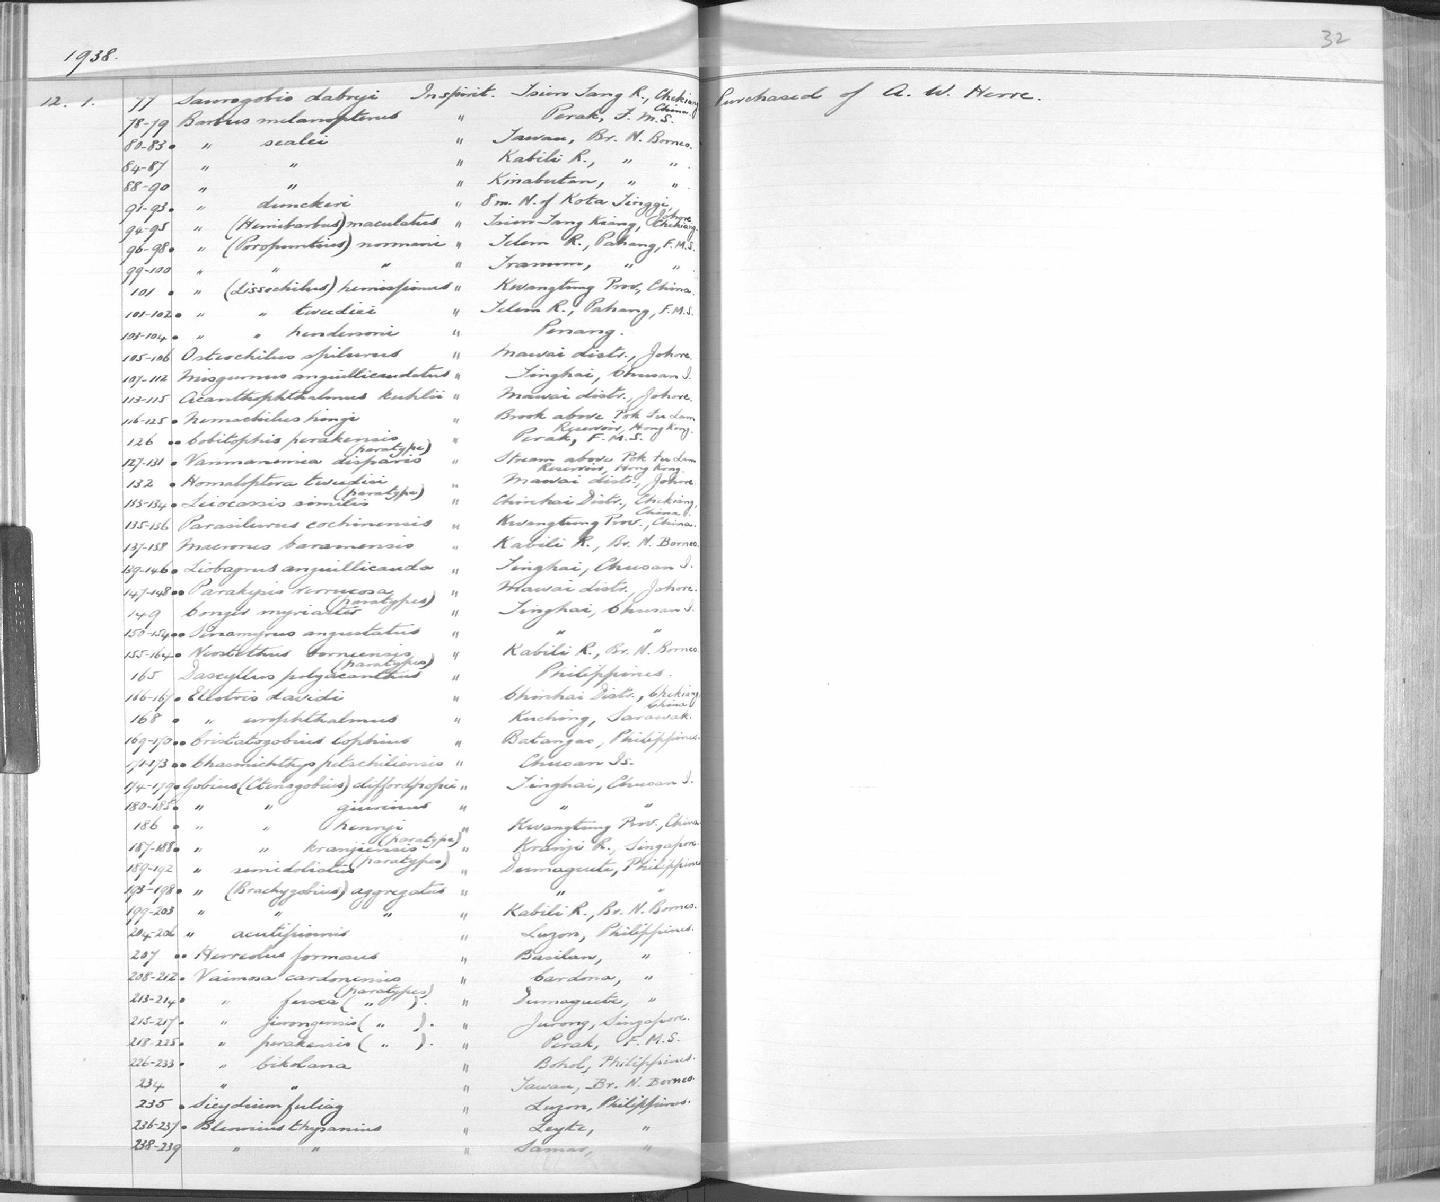 1938.
32
12. 1. 77 Saurogobio dabryi In spirit. Tsien Tang R., Chekiang China. Purchased of A. W. Herre.
78-79 Barbus melanopterus " Perak, F.M.S.
80-83 " sealei " Tawau, Br. N. Borneo.
84-87 " " " Kabili R., " " .
88-90 " " " Kinabutan, " " .
91-93 " dunckeri " 8 m. N. of Kota Tinggi, Johore
94-95 " (Hemibarbus) maculatus " Tsien Tang Kiang, Chekiang.
96-98 " (Poropuntius) normani " Telem R., Pahang, F.M.S.
99-100 " " " " " " .
101 " (dissochilus) " Kwangtung Prov., China.
101-102 " " tweediei " Telem R., Pahang, F.M.S.
103-104 " " hendersoni " Penang.
105-106 Osteochilus spilurus " Mawai distr., Johore
107-112 Misgurnus anguillicaudatus " Tinghai, Chusan I.
113-115 Acanthophthalmus kuhlii " Mawai distr., Johore.
116-125 Nemachilus " Brook above Pok Fu Lam Reservoir, Hong Kong.
126 Cobitophis perakensis (paratype) " Perak, F.M.S.
127-131 Vanmanenia " Stream above Pok Fu Lam Reservoir, Hong Kong.
132 Homaloptera tweediei (paratype) " Mawai distr., Johore
133-134 Leiocassis similis " Chinhai Distr., Chekiang, China.
135-136 Parasilurus cochinensis " Kwangtung Prov., China.
137-138 Macrones baramensis " Kabili R., Br. N. Borneo.
139-146 Liobagrus anguillicauda " Tinghai, Chusan I.
147-148 Parakysis verrucosa (paratypes) " Mawai distr., Johore.
149 Conger myriaster " Tinghai, Chusan I.
150-154 angustatus " " "
155-164 Neostethus borneensis (paratypes) " Kabili R., Br. N. Borneo.
165 Dascyllus polyacanthus " Philippines.
166-167 Eleotris davidi " Chinhai Distr., Chekiang China
168 " urophthalmus " Kuching, Sarawak.
169-170 Cristatogobius lophius " Batangas, Philippines.
171-173 Chasmichthys " Chusan Is.
174-179 Gobius (Ctenogobius) " Tinghai, Chusan I.
180-185 " " giurinus " " "
186 " " henryi " Kwangtung Prov., China
187-188 " " kranjiensis (paratype) " Kranji R., Singapore.
189-192 " semidoliatus (paratypes) " Dumaguete, Philippines
193-198 " (Brachygobius) aggregatus " " "
199-203 " " " " Kabili R., Br. N. Borneo.
204-206 " acutipinnis " Luzon, Philippines.
207 Herreolus formosus " Basilan, " .
208-212 Vaimosa cardonensis (paratypes) " Cardona, "
213-214 " fusca ( " ). " Dumaguete, "
215-217 " jurongensis ( " ). " Jurong, Singapore.
218-225 " perakensis ( " ). " Perak, F.M.S.
226-233 " bikolana " Bohol, Philippines.
234 " " " Tawau, Br. N. Borneo.
235 Sicydium " Luzon, Philippines.
236-237 Blennius thysanius " Leyte, "
238-239 " " " Samar, "